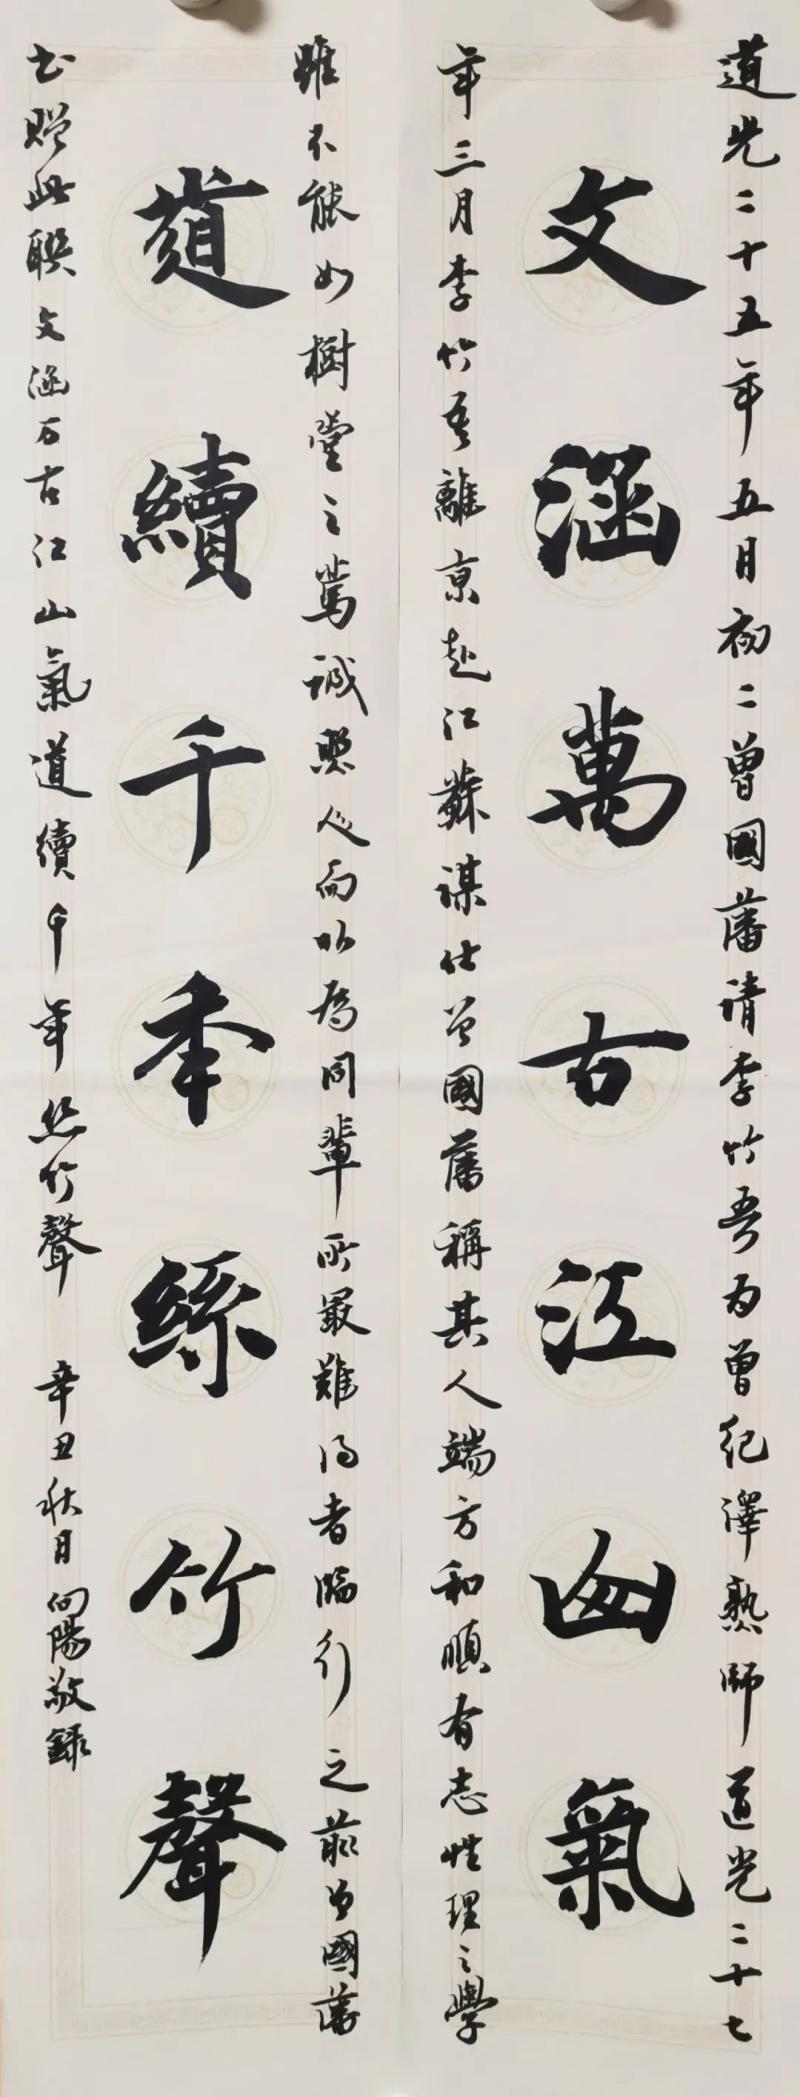 道光二十五年五月初二曾國藩请李竹吾为曾纪澤熟師道光二十七
文涵萬古江山氣
年三月李竹吾離京赴江蘇谋仕曾國藩稱其人端方和順有志性理之學
雖不能如樹堂之篤诚照人而以為同輩所最難得者臨行之前曾國藩
道續千年絲竹聲
书赠此联文涵万古江山氣道續千年丝竹聲 辛丑秋月向陽敬録